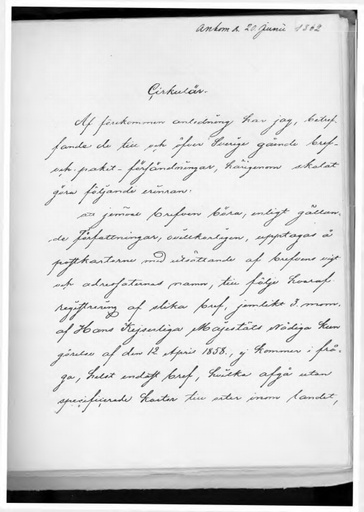 Ankom d. 20 Junii 1862
Cirkulär.
Af förekommen anledning har jag, betref-
fande de till och öfver Sverige gående bref-
och paket-försändningar, härigenom skolat
göra följande erinran:
att jemväl brefven böra, enligt gällan-
de författningar, ovillkorligen, upptagas å
postkartorna med utsättande af brefvens vigt
och adressaternas namn, till följe hvaraf
registrering af slika bref, jemlikt 3 mom.
af Hans Kejserliga Majestäts Nådiga Kun
görelse af den 12 April 1858, ej kommer i frå-
ga, helst endast bref, hvilka afgå utan
specificerade kartor till orter inom landet,